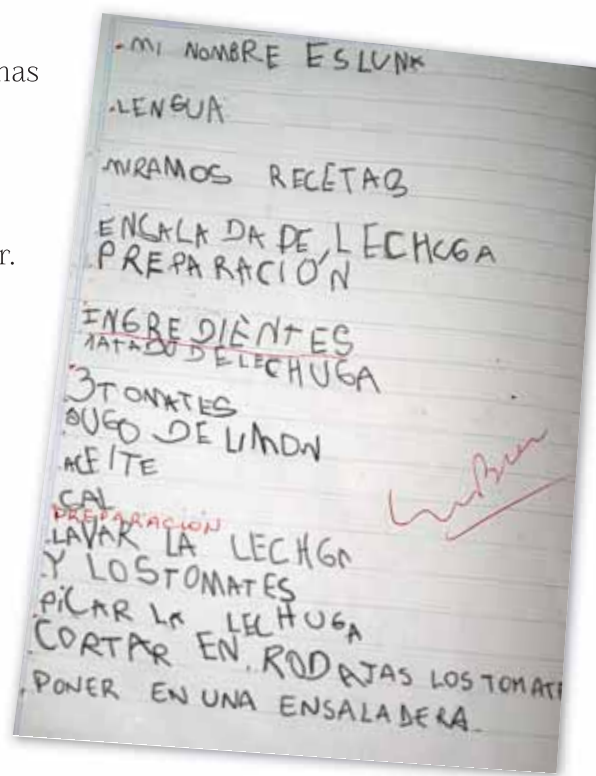 nas
r.
.MI NOMBRE ESLUNA
.LENGUA
MIRAMOS RECETAS
ENCALADA DE LECHUGA
PREPARACIÓN
INGREDIENTES
1ATADO DE LECHUGA
3TOMATES
JUGO DE LIMON
ACEITE
CAL
PREPARACION
LAVAR LA LECHGA
Y LOSTOMATES
PICAR LA LECHUGA
CORTAR EN RODAJAS LOS TOMATE
PONER EN UNA ENSALADERA